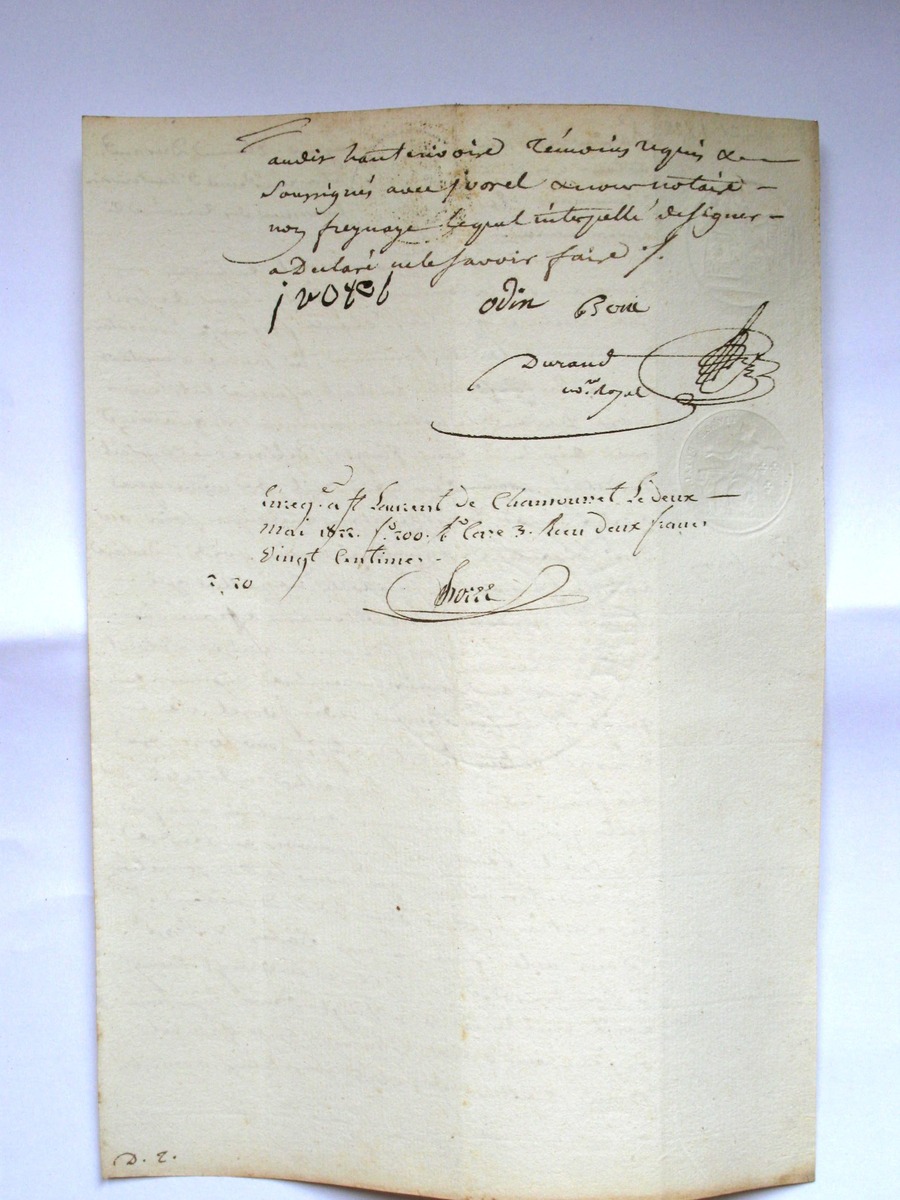 audit hauterivoire témoins requis &
soussignés avec jvorel & nous notaire
non freynage lequel interpellé de signer
a Declaré ne le savoir faire ./.
jvorel odin Boue
Durand
no.re Royal
Enreg.é à St Laurent de Chamousset Le deux
mai f.o 200. Case 3. Reçu deux francs
Vingt Centimes
2, 20
D. 2.